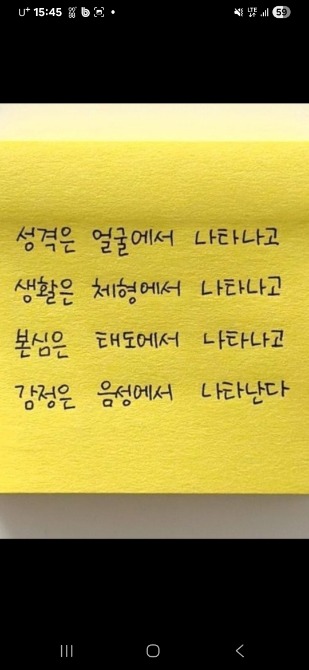 U+ 15:45
LTE
59
성격은 얼굴에서 나타나고
생활은 체형에서 나타나고
본심은 태도에서 나타나고
감정은 음성에서 나타난다